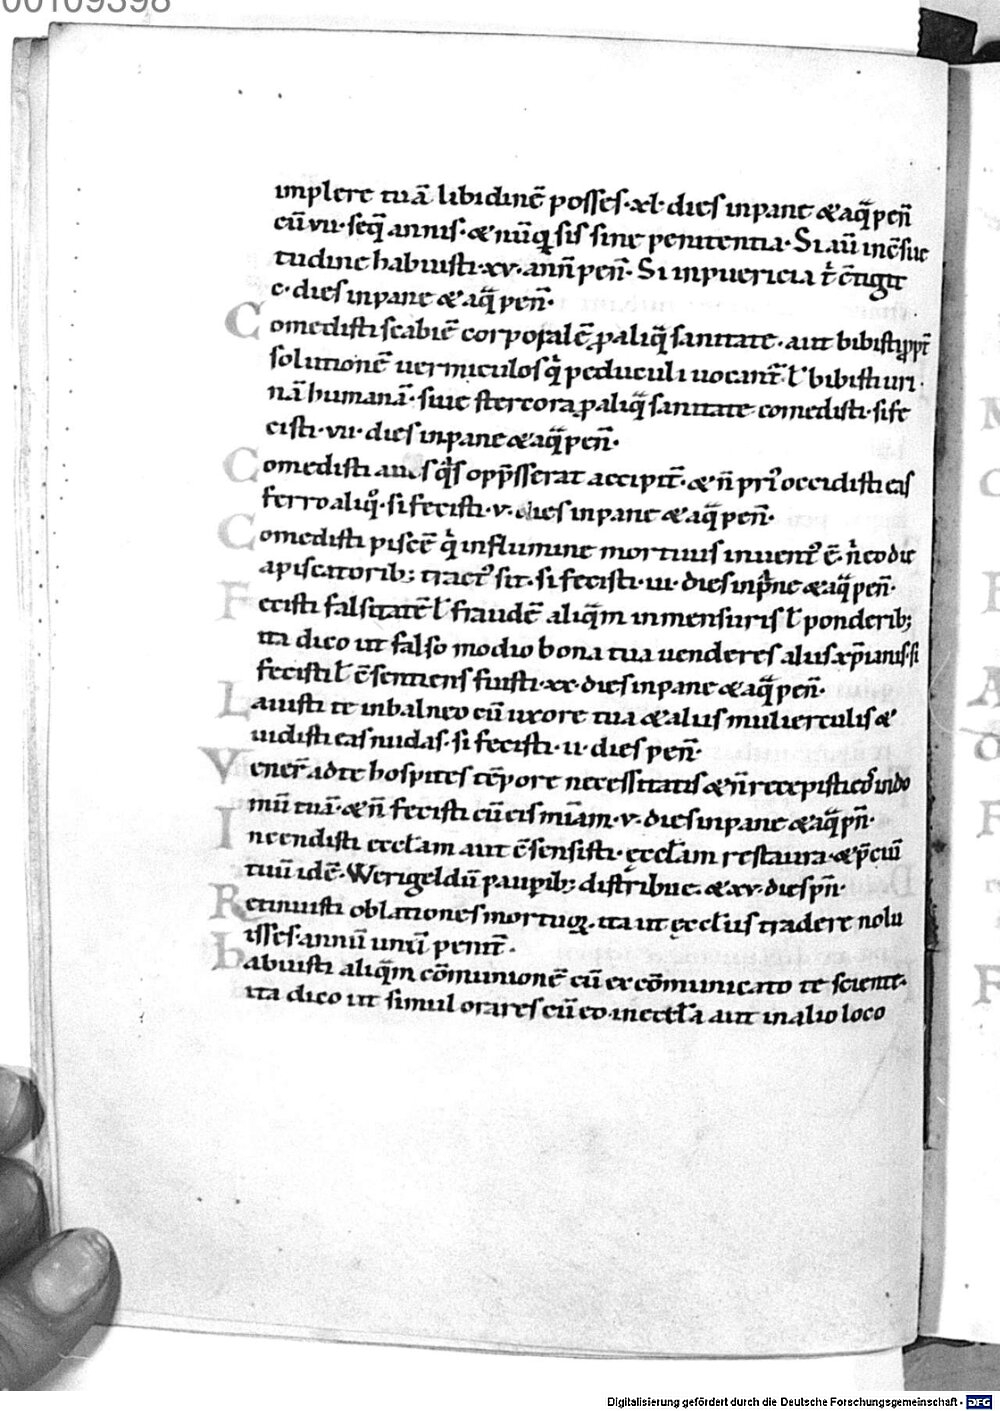 00109398
implere tuā libidinē posses·xl·dies inpane &aq̄ pen̄
cū vii·seq̄ annis·&nūq̄ sis sine penitentia·Si aū inc̄sue
tudine habuisti·xv·ann̄ pen̄·Si inpuericia t̄ c̄tigit
c·dies inpane &aq̄ pen̄·
Comedisti scabiē corporalē ꝓaliq̄ sanitate·aut bibisti ꝓpt̄
solutionē uermiculos q̄ peduculi uocant̄·ł bibisti uri·
nā humanā·siue stercora ꝓaliq̄ sanitate comedisti·sife
cisti·vii·dies inpane &aq̄ pen̄·
Comedisti aues q̄s opp̄sserat accipit̄·&n̄ pri᷒ occidisti eas
ferro aliq᷒·si fecisti·v·dies inpane &aq̄ pen̄·
Comedisti piscē q̄ influmine mortuus inuent᷒ ē·n̄ eo die
apiscatorib; tract᷒ sit·si fecisti·iii·dies inpͣne &aq̄ pen̄·
Fecisti falsitatē ł fraudē aliq̄m inmensuris ł ponderib;
ita dico ut falso modio bona tua uenderes aliis xp̄ianis·si
fecisti ł c̄sentiens fuisti·xx·dies inpane &aq̄ pen̄·
Lauisti te inbalneo cū uxore tua &aliis mulierculis &
uidisti eas nudas·si fecisti·ii·dies pen̄·
Vener̄ adte hospites tēpore necessitatis &n̄ recepisti eos indo
mū tuā·&n̄ fecisti cū eis mīam·v·dies inpane &aq̄ pn̄·
Incendisti eccłam aut c̄sensisti·ęccłam restaura·&p̄ciū
tuū idē·Werigeldū pauꝑib; distribue·&xv·dies pn̄·
Retinuisti oblationes mortuoꝝ·ita ut ęccłiis tradere nolu
isses·annū unū penit̄·
habuisti aliq̄m cōmunionē cū excōmunicato te sciente·
ita dico ut simul orares cū eo ineccła aut inalio loco
Digitalisierung gefördert durch die Deutsche Forschungsgemeinschaft - DFG